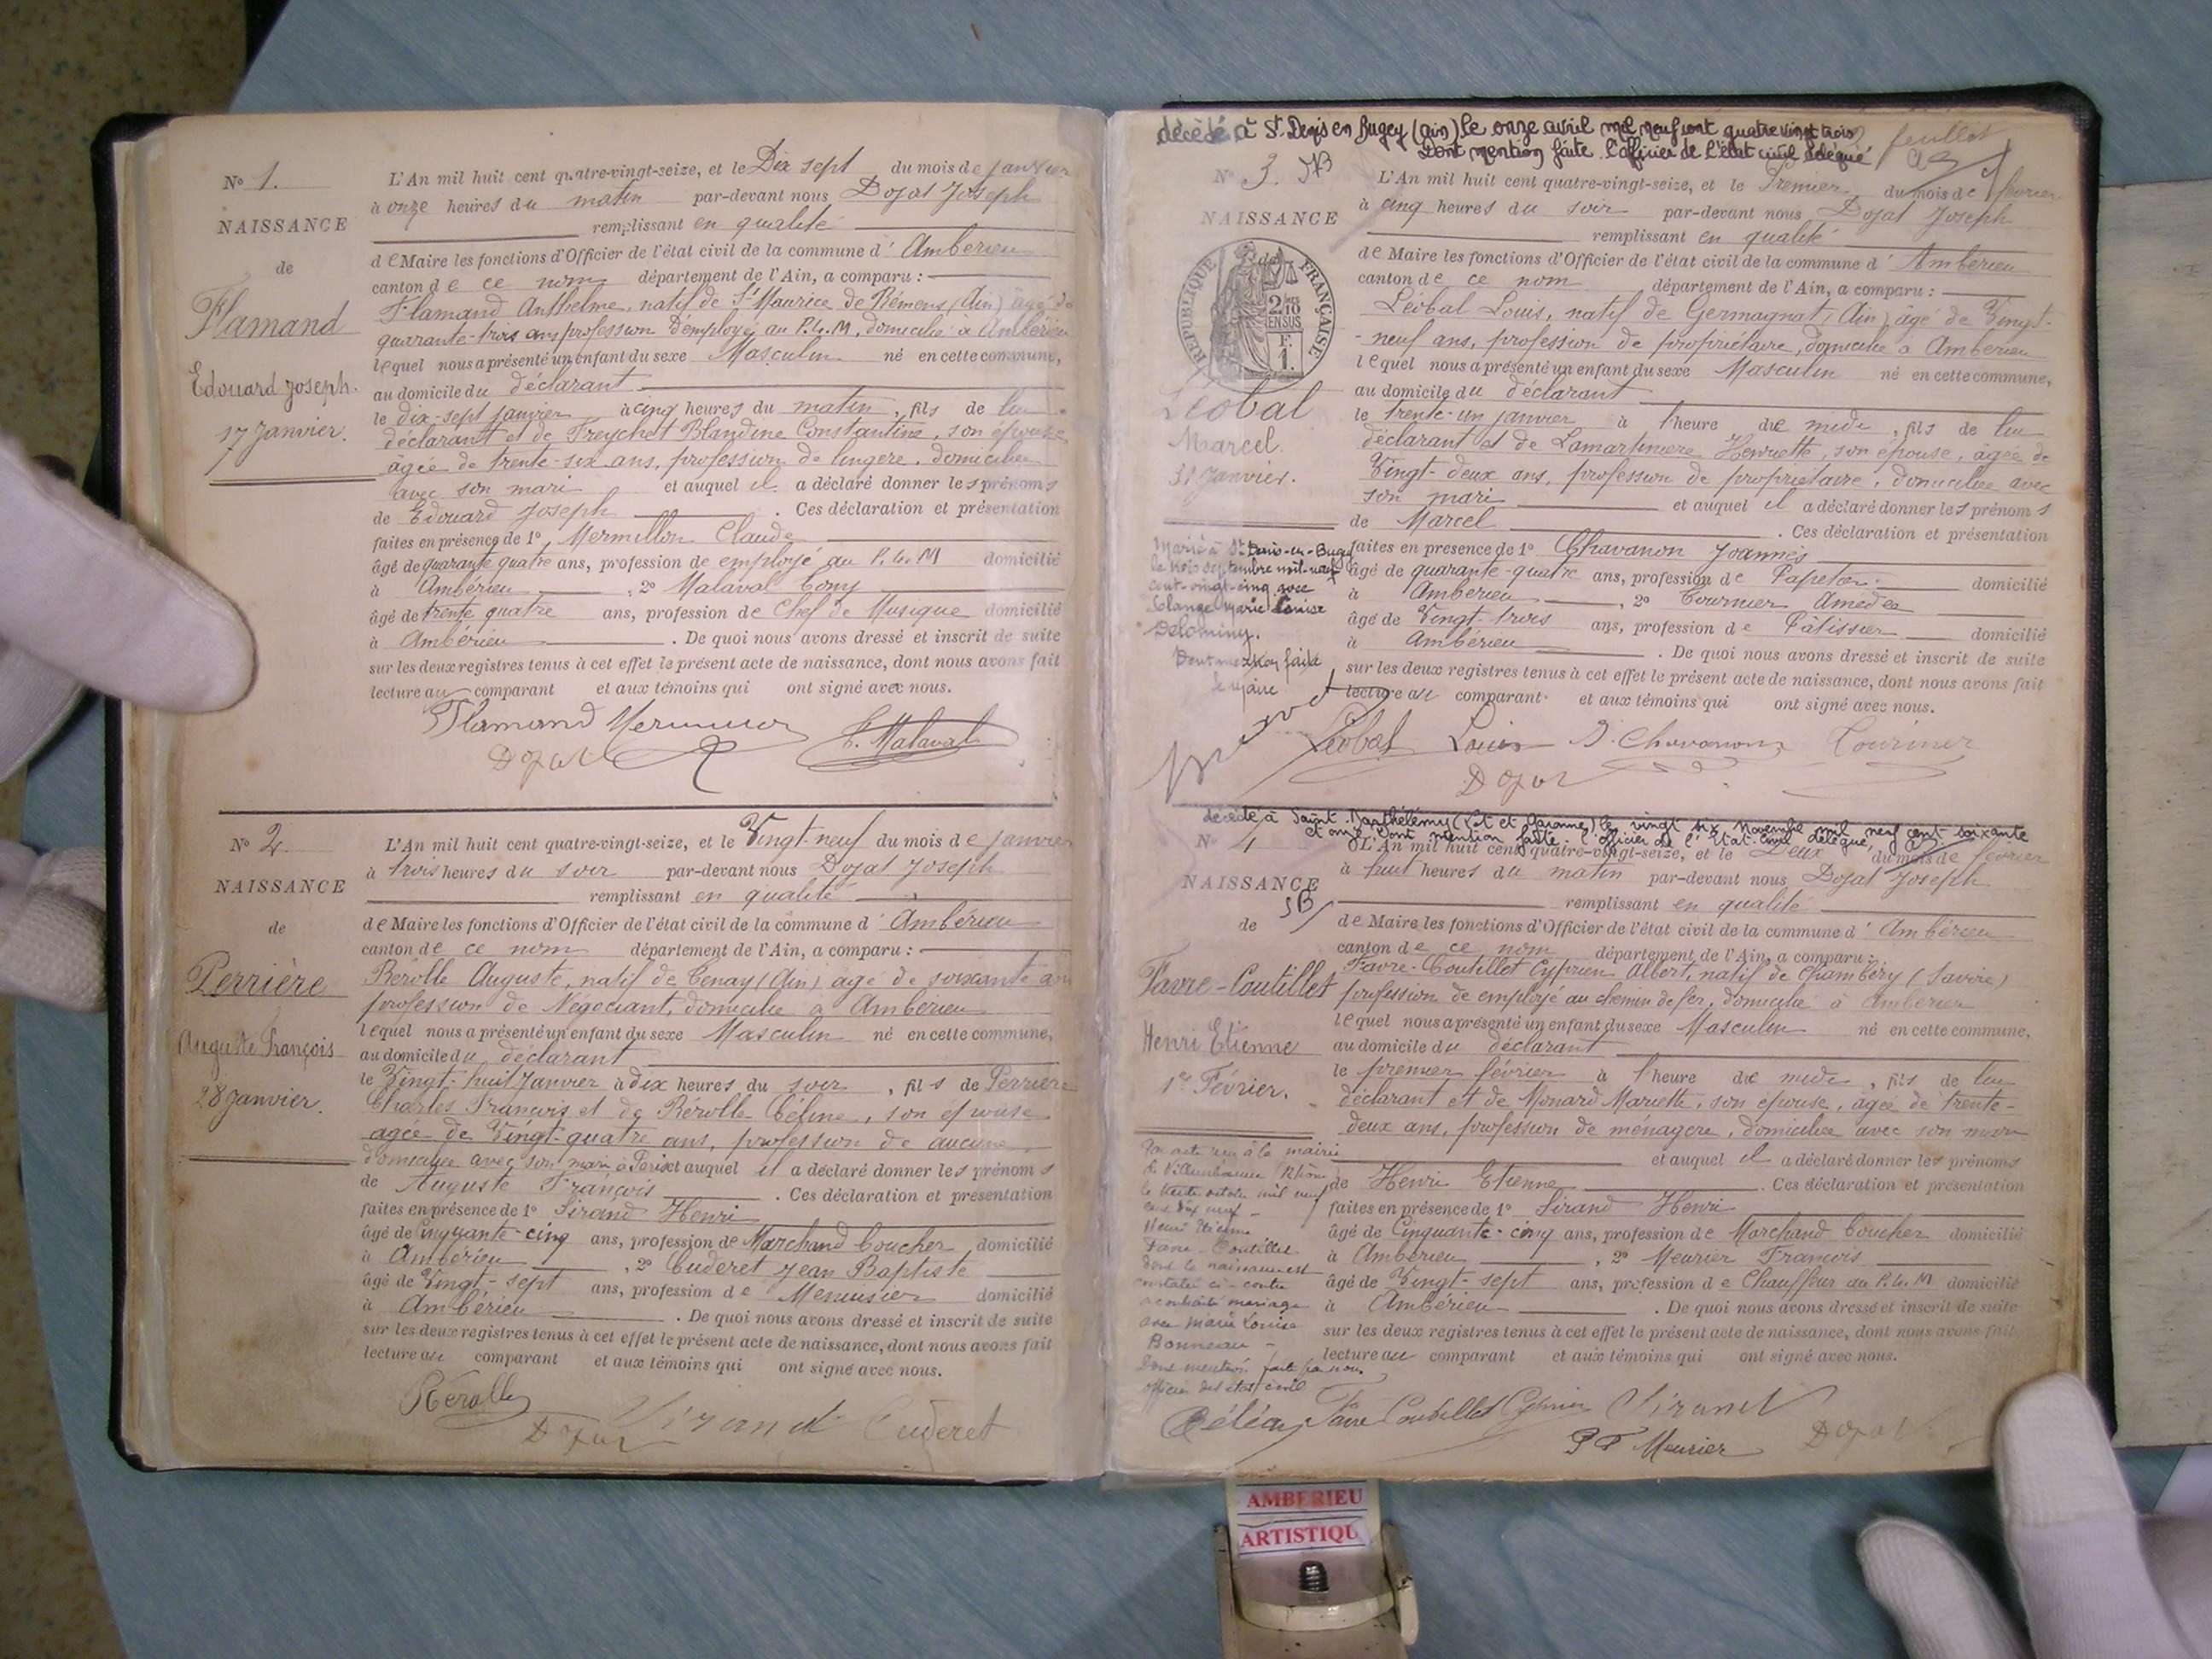 N° 1.
NAISSANCE
de
Flamand
Edouard Joseph.
17 Janvier.
L'An mil huit cent quatre-vingt-seize, et le Dix sept du mois de janvier
à onze heures du matin par-devant nous Dojat Joseph
remplissant en qualité
de Maire les fonctions d'Officier de l'état civil de la commune d'Ambérieu
canton de ce nom département de l'Ain, a comparu :
Flamand Anthelme, natif de St Maurice de Rémens (Ain) âgé de
quarante-trois ans profession d'employé au P.L.M, domicilié à Ambérieu
lequel nous a présenté un enfant du sexe Masculin né en cette commune,
au domicile du déclarant
le dix-sept janvier à cinq heures du matin, fils de lui
déclarant et de Freychet Blandine Constantine, son épouse
âgée de trente-six ans, profession de lingère, domiciliée
avec son mari et auquel il a déclaré donner les prénoms
de Edouard Joseph. Ces déclaration et présentation
faites en présence de 1° Mermillon Claude
âgé de quarante quatre ans, profession de employé au P.L.M domicilié
à Ambérieu, 2° Malaval Tony
âgé de trente quatre ans, profession de Chef de Musique domicilié
à Ambérieu. De quoi nous avons dressé et inscrit de suite
sur les deux registres tenus à cet effet le présent acte de naissance, dont nous avons fait
lecture au comparant et aux témoins qui ont signé avec nous.
Flamand Mermillon T. Malaval
Dojat
N° 2.
NAISSANCE
de
Perrière
Auguste François
28 Janvier.
L'An mil huit cent quatre-vingt-seize, et le Vingt-neuf du mois de janvier
à trois heures du soir par-devant nous Dojat Joseph
remplissant en qualité
de Maire les fonctions d'Officier de l'état civil de la commune d'Ambérieu
canton de ce nom département de l'Ain, a comparu :
Rérolle Auguste, natif de Tenay (Ain) âgé de soixante ans
profession de Négociant, domicilié à Ambérieu
lequel nous a présenté un enfant du sexe Masculin né en cette commune,
au domicile du déclarant
le Vingt-huit Janvier à dix heures du soir, fils de Perrière
Charles François et de Rérolle Céline, son épouse
âgée de Vingt-quatre ans, profession de aucune
domiciliée avec son mari à Paris et auquel il a déclaré donner les prénoms
de Auguste François. Ces déclaration et présentation
faites en présence de 1° Sirand Henri
âgé de Cinquante-cinq ans, profession de Marchand boucher domicilié
à Ambérieu, 2° Cuderet Jean Baptiste
âgé de Vingt-sept ans, profession de Menuisier domicilié
à Ambérieu. De quoi nous avons dressé et inscrit de suite
sur les deux registres tenus à cet effet le présent acte de naissance, dont nous avons fait
lecture au comparant et aux témoins qui ont signé avec nous.
Rérolle Sirand Cuderet
Dojat
décédé à St Denis en Bugey (Ain) le onze avril mil neuf cent quatre vingt trois
Dont mention faite. l'officier de l'état civil délégué
feuillet
N° 3. JB
NAISSANCE
de
RÉPUBLIQUE FRANÇAISE
2/10 EN SUS
F.
1.
Léobal
Marcel.
31 Janvier.
Marié à St Denis-en-Bugey
le trois septembre mil-neuf
cent-vingt-cinq avec
Marie Louise
Delominy.
Dont mention faite
le maire
L'An mil huit cent quatre-vingt-seize, et le Premier du mois de février
à cinq heures du soir par-devant nous Dojat Joseph
remplissant en qualité
de Maire les fonctions d'Officier de l'état civil de la commune d'Ambérieu
canton de ce nom département de l'Ain, a comparu :
Léobal Louis, natif de Germagnat (Ain) âgé de Vingt-
-neuf ans, profession de propriétaire, domicilié à Ambérieu
lequel nous a présenté un enfant du sexe Masculin né en cette commune,
au domicile du déclarant
le trente-un janvier à l'heure de midi, fils de lui
déclarant et de Lamartinière Henriette, son épouse, âgée de
Vingt-deux ans, profession de propriétaire, domiciliée avec
son mari et auquel il a déclaré donner les prénoms
de Marcel. Ces déclaration et présentation
faites en présence de 1° Chavanon Joannès
âgé de quarante-quatre ans, profession de Papetier domicilié
à Ambérieu, 2° Tournier Amédée
âgé de Vingt-trois ans, profession de Pâtissier domicilié
à Ambérieu. De quoi nous avons dressé et inscrit de suite
sur les deux registres tenus à cet effet le présent acte de naissance, dont nous avons fait
lecture au comparant et aux témoins qui ont signé avec nous.
Léobal Louis J. Chavanon Tournier
Dojat
décédé à Saint-Barthélémy (Lot et Garonne) le vingt six Novembre mil neuf cent soixante
et onze. Dont mention faite l'officier de l'Etat Civil délégué,
N° 4
NAISSANCE
de JB
Favre-Coutillet
Henri Etienne
1er Février.
Par acte reçu à la mairie
de Villeurbanne Rhône
le trente octobre mil neuf
cent dix neuf -
Henri Etienne
Favre-Coutillet
dont la naissance est
constatée ci-contre
a contracté mariage
avec Marie Louise
Bonneau -
Dont mention faite par nous
officier de l'état civil
L'An mil huit cent quatre-vingt-seize, et le Deux du mois de février
à huit heures du matin par-devant nous Dojat Joseph
remplissant en qualité
de Maire les fonctions d'Officier de l'état civil de la commune d'Ambérieu
canton de ce nom département de l'Ain, a comparu :
Favre-Coutillet Cyprien Albert, natif de Chambéry (Savoie)
profession de employé au chemin de fer, domicilié à Ambérieu
lequel nous a présenté un enfant du sexe Masculin né en cette commune,
au domicile du déclarant
le premier février à l'heure de midi, fils de lui
déclarant et de Monard Mariette, son épouse, âgée de trente-
deux ans, profession de ménagère, domiciliée avec son mari
et auquel il a déclaré donner les prénoms
de Henri Etienne. Ces déclaration et présentation
faites en présence de 1° Sirand Henri
âgé de Cinquante-cinq ans, profession de Marchand boucher domicilié
à Ambérieu, 2° Meurier François
âgé de Vingt-sept ans, profession de Chauffeur au P.L.M domicilié
à Ambérieu. De quoi nous avons dressé et inscrit de suite
sur les deux registres tenus à cet effet le présent acte de naissance, dont nous avons fait
lecture au comparant et aux témoins qui ont signé avec nous.
Favre Coutillet Cyprien Sirand
P F Meurier Dojat
AMBERIEU
ARTISTIQU